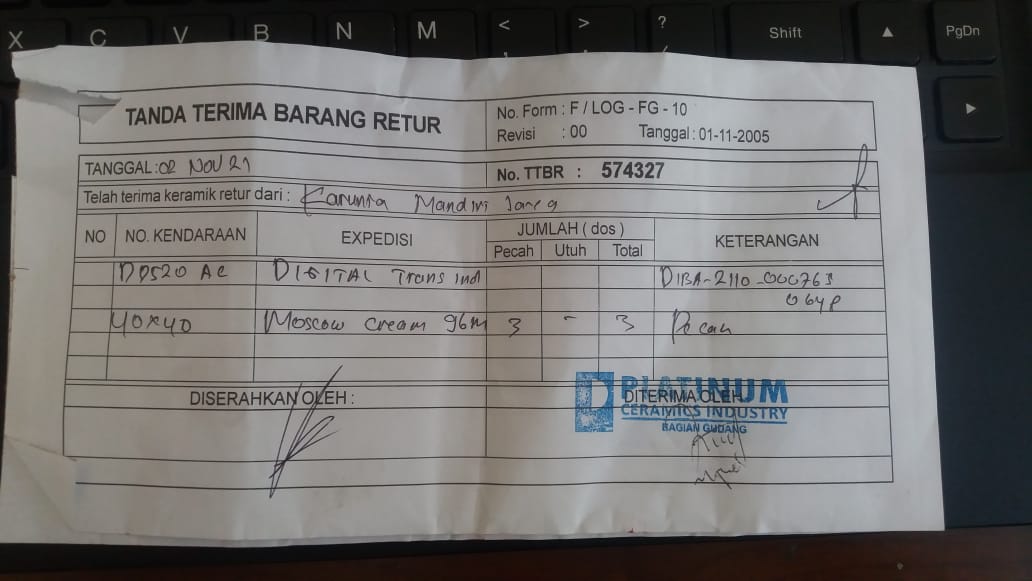 X C V B N M < > ? Shift ▲ PgDn
, . /
►
TANDA TERIMA BARANG RETUR
No. Form : F / LOG - FG - 10
Revisi : 00 Tanggal : 01-11-2005
TANGGAL : 02 NOV 21
No. TTBR : 574327
Telah terima keramik retur dari : Karunia Mandiri
NO NO. KENDARAAN EXPEDISI JUMLAH ( dos ) KETERANGAN
Pecah Utuh Total
DIGITAL Trans ind DIBA-2110-000763
40x40 Moscow cream 3 - 3 Pecah
DISERAHKAN OLEH : DITERIMA OLEH
PLATINUM
CERAMICS INDUSTRY
BAGIAN GUDANG